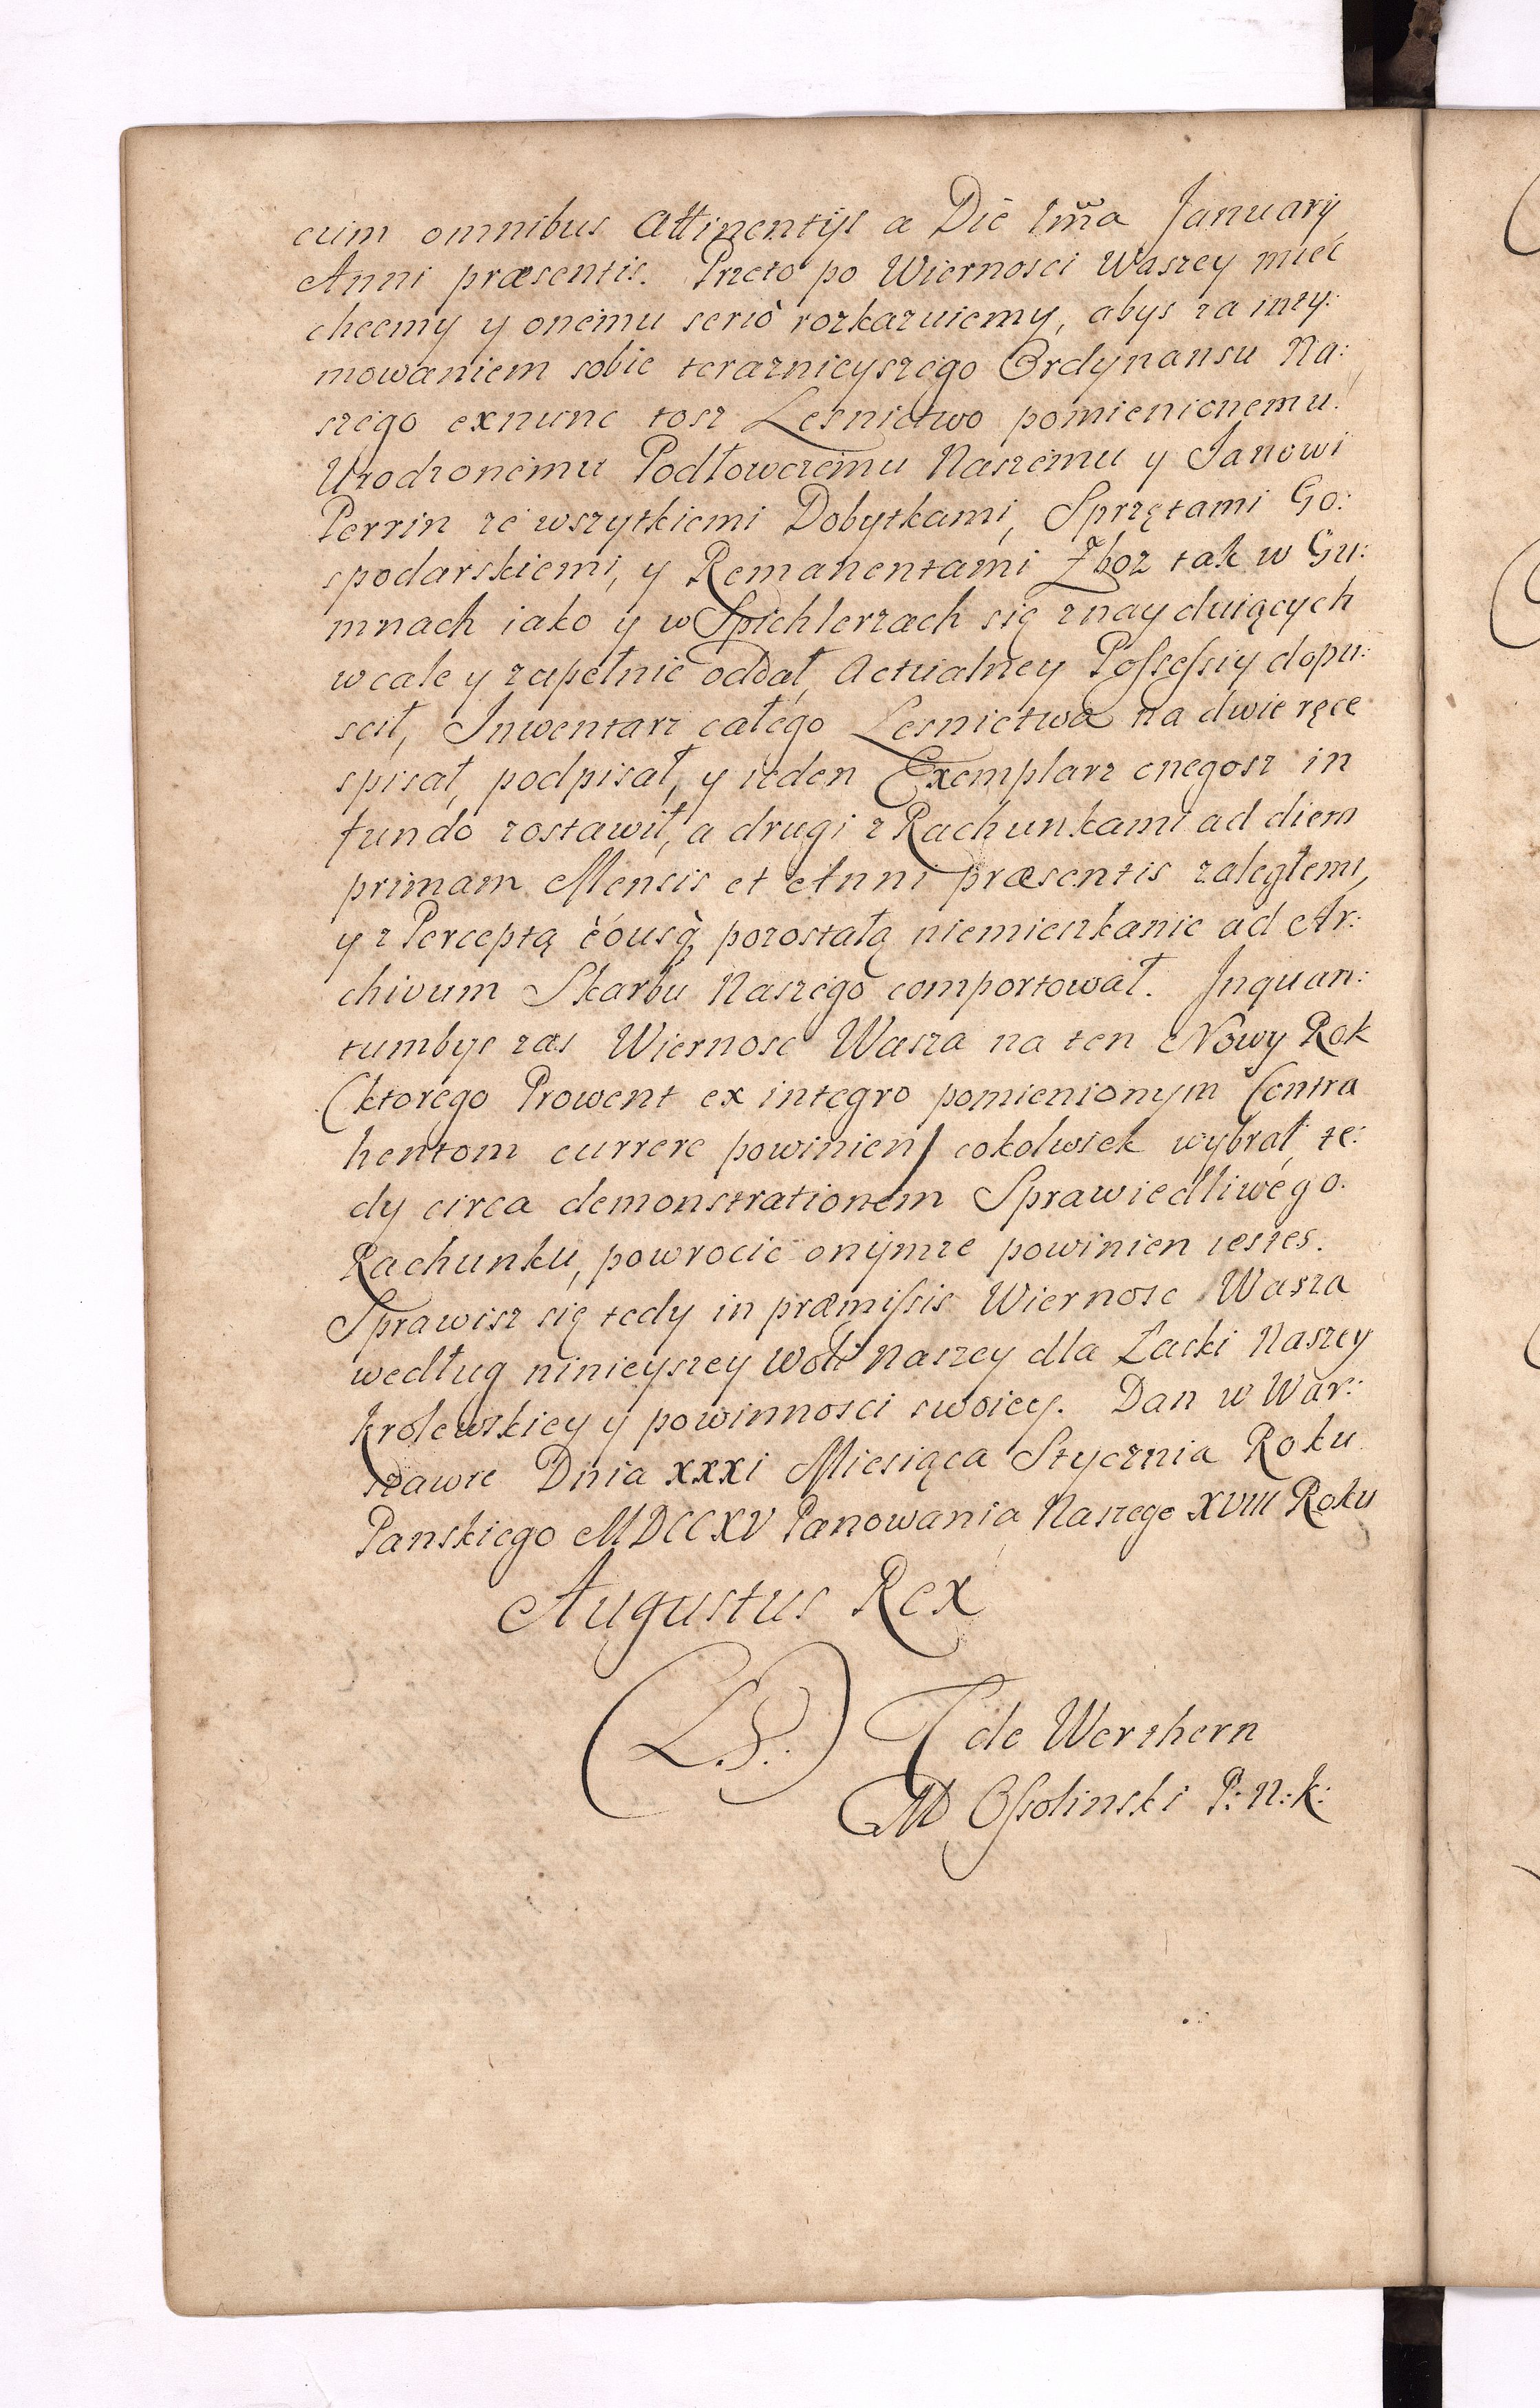 cum omnibus Attinentijs a Die 1ma January
Anni præsentis. Przeto po Wiernosci Waszey mieć
chcemy y onemu seriò rozkazuiemy, abys za inty:
mowaniem sobie teraznieyszego Ordynansu Na:
szego exnunc tosz Lesnictwo pomienionemu
Urodzonemu Podłowczemu Naszemu y Janowi
Perrin ze wszytkiemi Dobytkami, Sprzętami Go:
spodarskiemi, y Remanentami Zboz tak w Gu:
mnach iako y w Spichlerzach się znayduiących
wcale y zupełnie oddał, Actualney Possessiy dopu:
scił, Inwentarz całego Lesnictwa na dwie ręce
spisał, podpisał, y ieden Exemplarz onegosz in
fundo zostawił, a drugi z Rachunkami ad diem
primam Mensis et Anni præsentis zaległemi,
y z Perceptą èousq pozostałą niemieszkanie ad Ar:
chivum Skarbu Naszego comportował. Inquan:
tumbys zas Wiernosc Wasza na ten Nowy Rok
(ktorego Prowent ex integro pomienionym Contra
hentom currere powinien) cokolwiek wybrał, te:
dy circa demonstrationem Sprawiedliwego
Rachunku, powrocic onymze powinien iestes.
Sprawisz się tedy in præmissis Wiernosc Wasza
według ninieyszey Woli Naszey dla Łaski Naszey
krolewskiey y powinnosci swoiey. Dan w War:
szawie Dnia XXXI Miesiąca Stycznia Roku
Panskiego MDCCXV Panowania Naszego XVIII Roku
Augustus Rex
(L.S.) G de Werthern
M Ossolinski P: N: k: